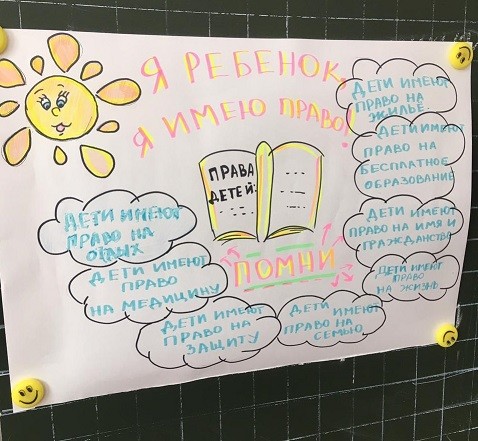 Я РЕБЕНОК,
Я ИМЕЮ ПРАВО!
ПРАВА
ДЕТЕЙ:
ПОМНИ
ДЕТИ ИМЕЮТ
ПРАВО НА
ЖИЛЬЕ
ДЕТИ ИМЕЮТ
ПРАВО НА
БЕСПЛАТНОЕ
ОБРАЗОВАНИЕ
ДЕТИ ИМЕЮТ
ПРАВО НА ИМЯ И
ГРАЖДАНСТВО
ДЕТИ ИМЕЮТ
ПРАВО
НА ЖИЗНЬ
ДЕТИ ИМЕЮТ
ПРАВО НА
ОТДЫХ
ДЕТИ ИМЕЮТ
ПРАВО
НА МЕДИЦИНУ
ДЕТИ ИМЕЮТ
ПРАВО НА
ЗАЩИТУ
ДЕТИ ИМЕЮТ
ПРАВО НА
СЕМЬЮ